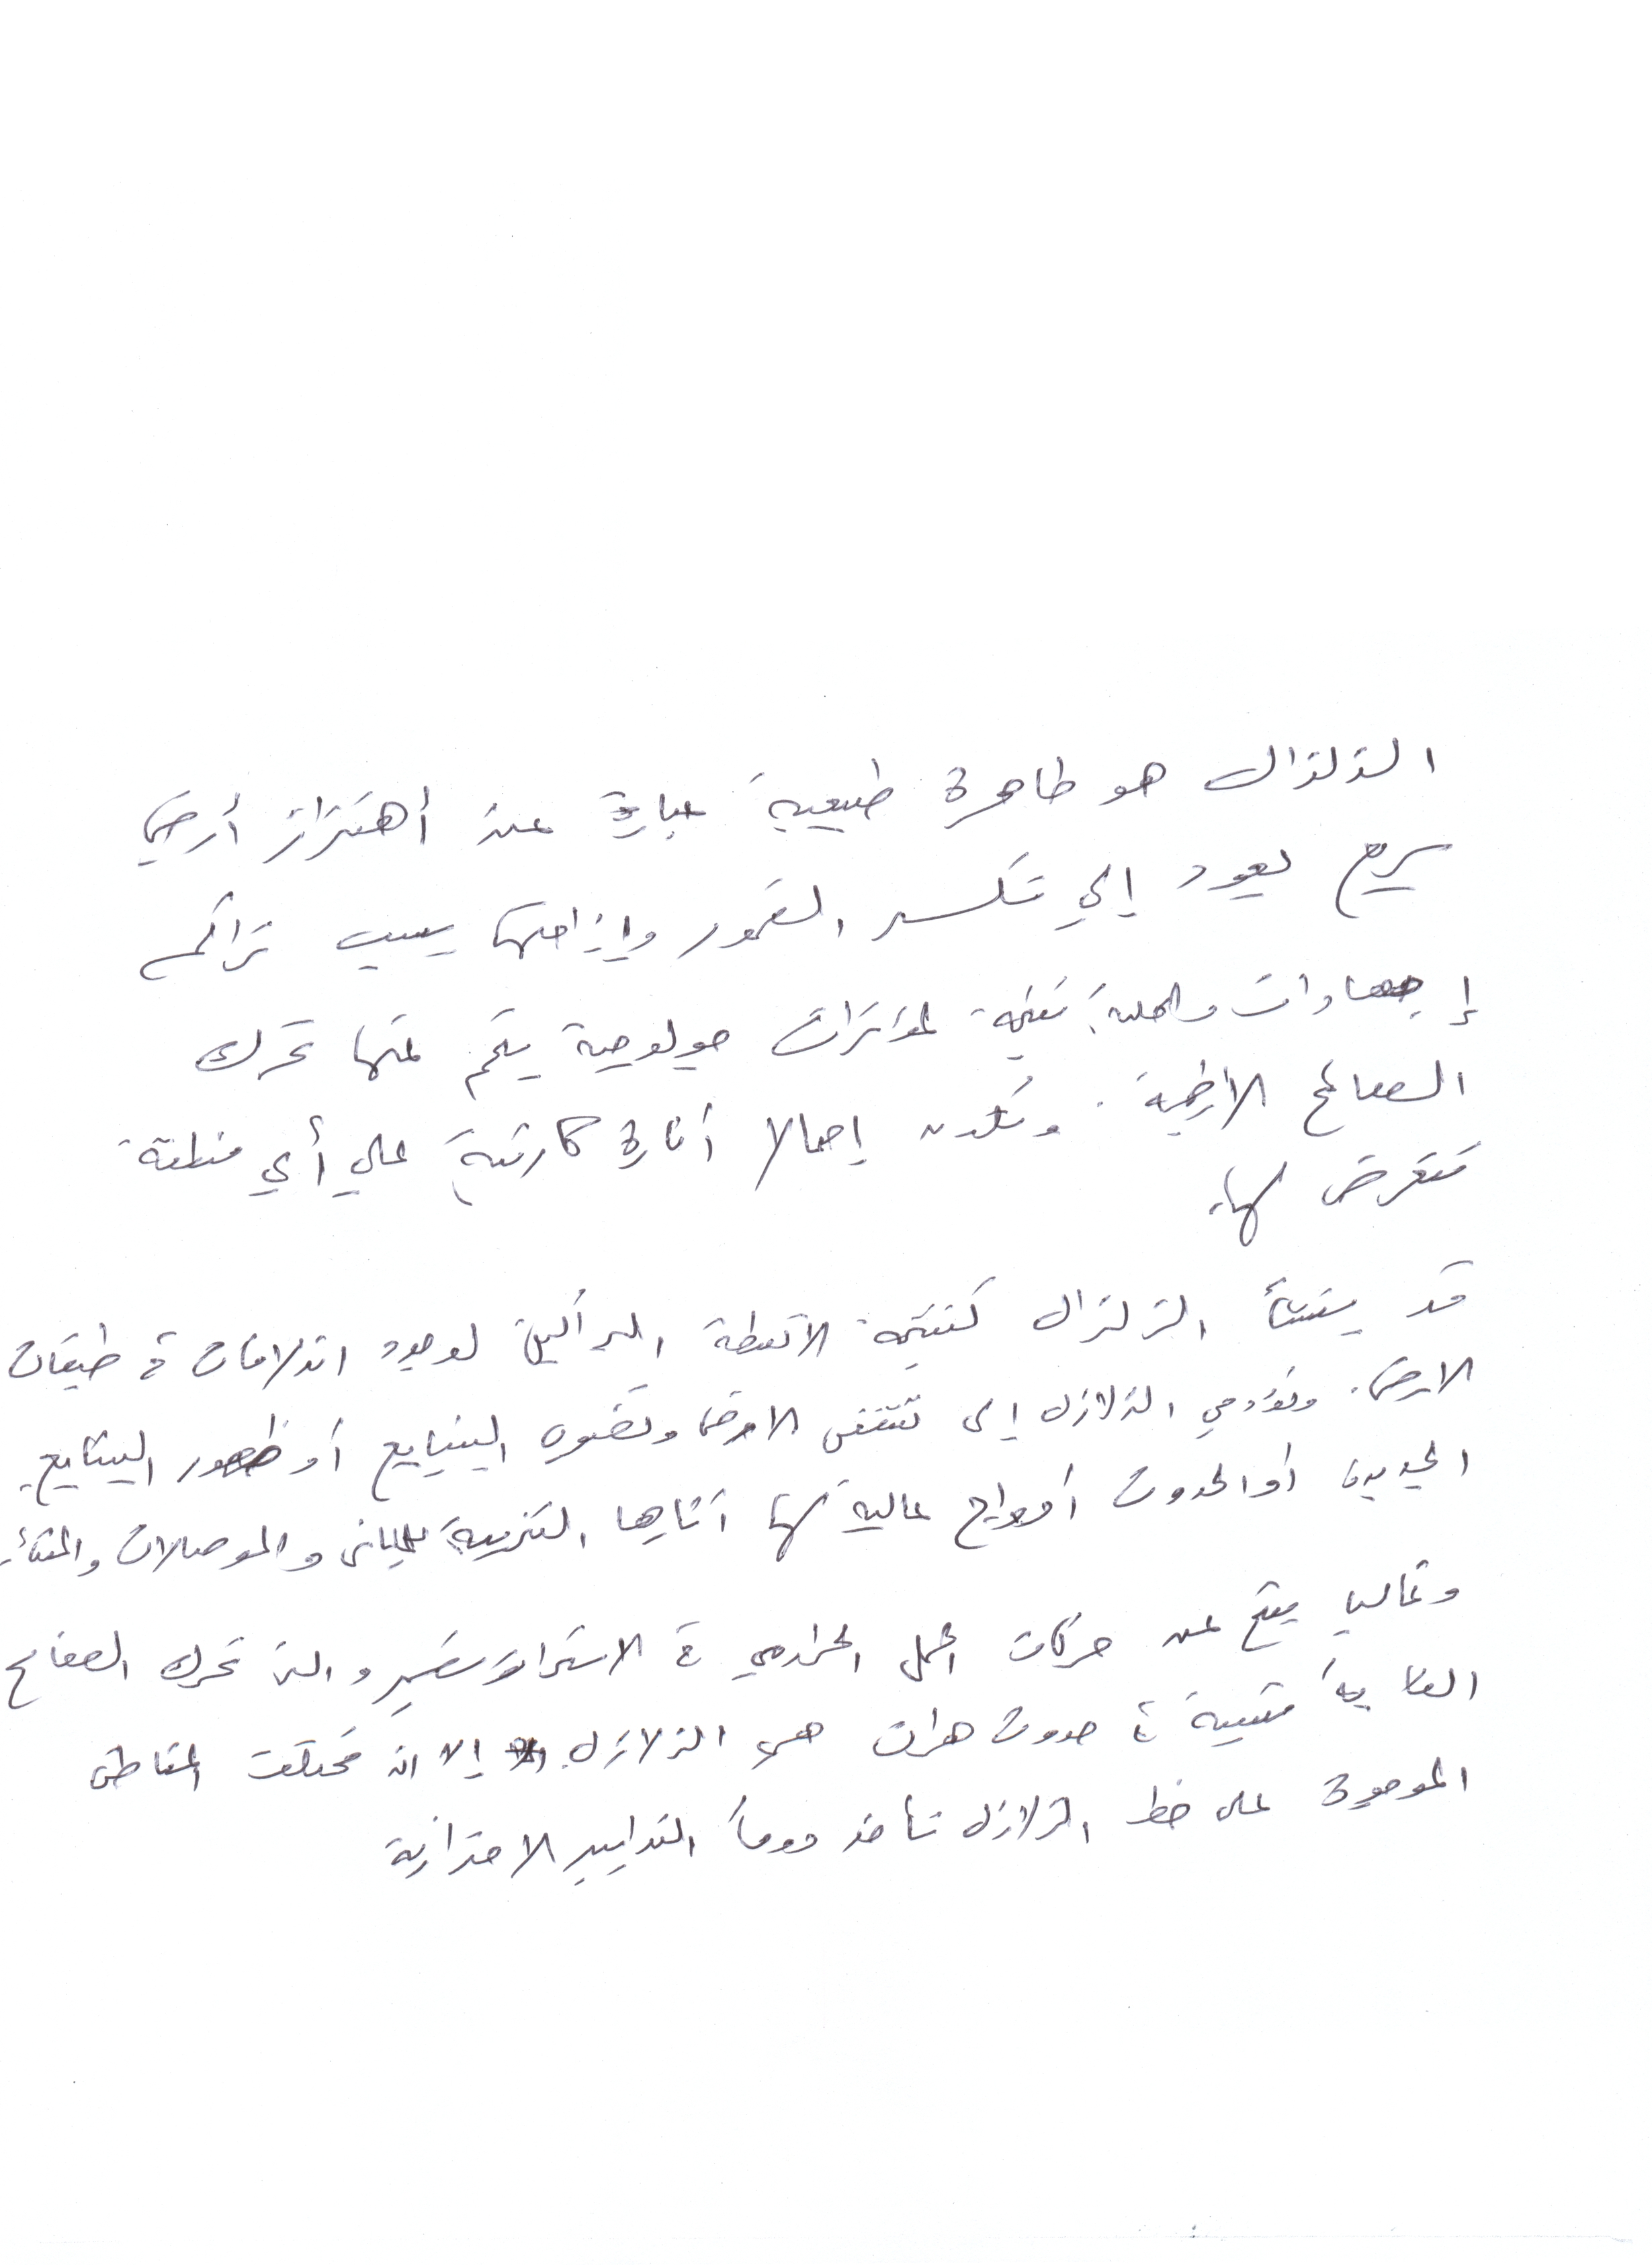 الزلزال هو ظاهرة طبيعية عبارة عن أهتزاز أرضي
سريع يعود إلي تكسر الصخور وإزاحتها بسبب تراكم
إجهادات داخلية نتيجة لمؤثرات جيولوجية ينجم عنها تحرك
الصفائح الارضية. وتكون إجمالا أثاره كارثية علي أي منطقة
تتعرض لها.
قد ينشأ الزلزال كنتيجة لأنشطة البراكين لوجود انزلاقات في طبقات
الارض. وتؤدي الزلازل إلى تشقق الارض ونضوب الينابيع أو ظهور الينابيع
الجديدة أو الحدوث أمواج عالية لها أثارها التخريبية للمباني والمواصلات والمنشأ
وغالبا ينتج عن حركات الحمل الحراري في الاستينوسفير والتي تحرك الصفائح
القارية متسببة في حدوث هزات هي الزلازل إلا ان مختلف المناطق
الموجودة على خط الزلازل تأخذ دوماً التدابير الاحترازية